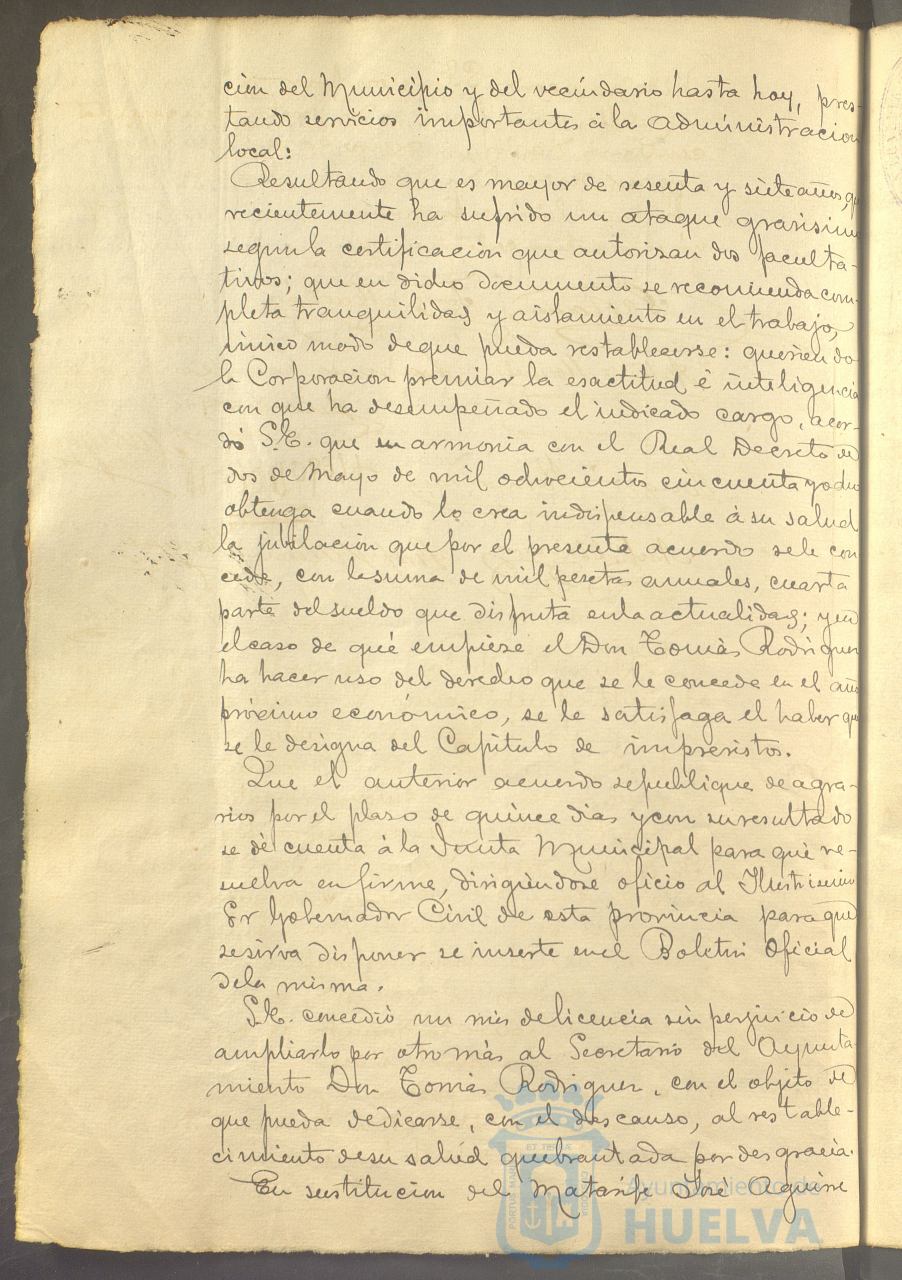 cion del Municipio y del vecindario hasta hoy, pres-
tando servicios importantes á la administracion
local:
Resultando que es mayor de sesenta y siete años, que
recientemente ha sufrido un ataque gravisimo
segun la certificacion que autorizan dos faculta-
tivos; que en dicho documento se recomienda com-
pleta tranquilidad y aislamiento en el trabajo,
único modo de que pueda restablecerse: queriendo
la Corporacion premiar la esactitud é inteligencia
con que ha desempeñado el indicado cargo, acor-
dó S.E. que en armonia con el Real Decreto de
dos de Mayo de mil ochocientos cincuenta y ocho
obtenga cuando lo crea indispensable á su salud
la jubilacion que por el presente acuerdo se le con
cede, con la suma de mil pesetas anuales, cuarta
parte del sueldo que disfruta en la actualidad; y en
el caso de que empiese el Don Tomás Rodriguez
ha hacer uso del derecho que se le concede en el año
próximo económico, se le satisfaga el haber que
se le designa del Capitulo de imprevistos.
Que el anterior acuerdo se publique de agra-
vios por el plaso de quince dias y con su resultado
se dé cuenta á la Junta Municipal para que re-
suelva en firme, dirigiéndose oficio al Ilustrisimo
Sr Gobernador Civil de esta provincia para que
se sirva disponer se inserte en el Boletin Oficial
de la misma.
S.E. concedió un mes de licencia sin perjuicio de
ampliarlo por otro más al Secretario del Ayunta-
miento Don Tomás Rodriguez, con el objeto de
que pueda dedicarse, con el descanso, al restable-
cimiento de su salud quebrantada por desgracia.
En sustitucion del Matarife José Aguirre
Ayuntamiento de
HUELVA